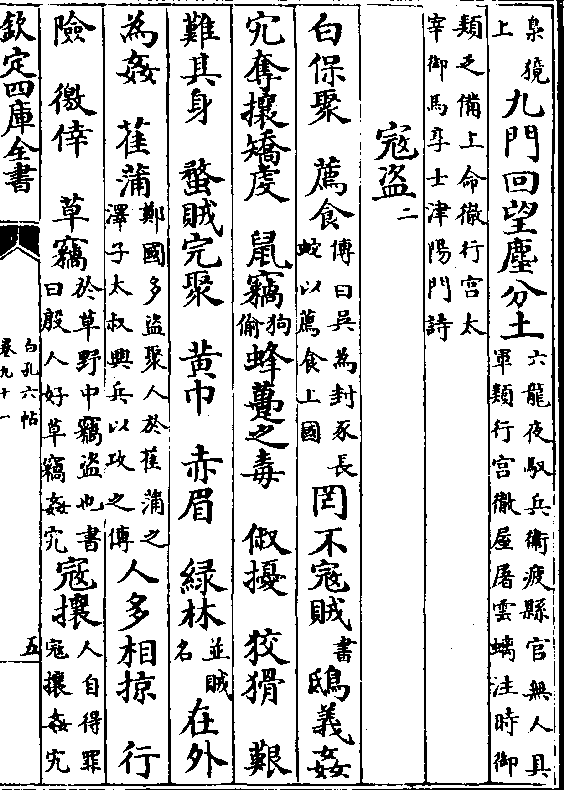 梟獍上九門回望塵分土六龍夜馭兵衛疲縣官無人具軍類行宮徹屋屠雲螭注時御
類之備上命徹行宮太宰御馬享士津陽門詩
寇盜二
白保聚 薦食傳曰吳為封豕長蛟以薦食上國 罔不寇賊書 鴟義姦
宄奪攘矯虔 鼠竊狗偷 蜂蠆之毒 俶擾 狡猾 艱
難其身 蝥賊完聚 黃巾 赤眉 綠林並賊名 在外
為姦 萑蒲鄭國多盜聚人於萑蒲之澤子太叔興兵以攻之傳 人多相掠 行
險徼倖 草竊於草野中竊盜也書曰殷人好草竊姦宄 寇攘人自得罪寇攘姦宄
欽定四庫全書
白孔六帖
卷九十一
五